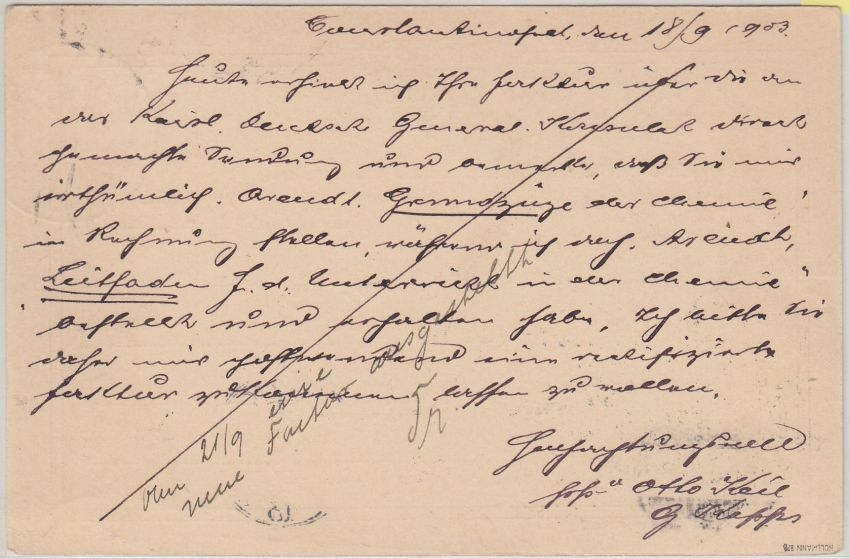 Constantinopel, den 18/9 1903.
Heute erhielt ich Ihre Faktur über die an
das Kaisl. Deutsche General-Konsulat direct
gemachte Sendung und bemerke, daß Sie mir
irrthümlich. Arendt. Grundzüge der Chemie"
in Rechnung stellen, während ich doch. Arendt,
Leitfaden f. d. Unterricht in der Chemie"
bestellt und erhalten habe, Ich bitte Sie
daher mir eine rectifizierte
Faktur zukommen lassen zu wollen.
Hochachtungsvoll
Otto Keil
vom 21/9 eine
neue Factur ausgestellt
HOLLMANN BPB